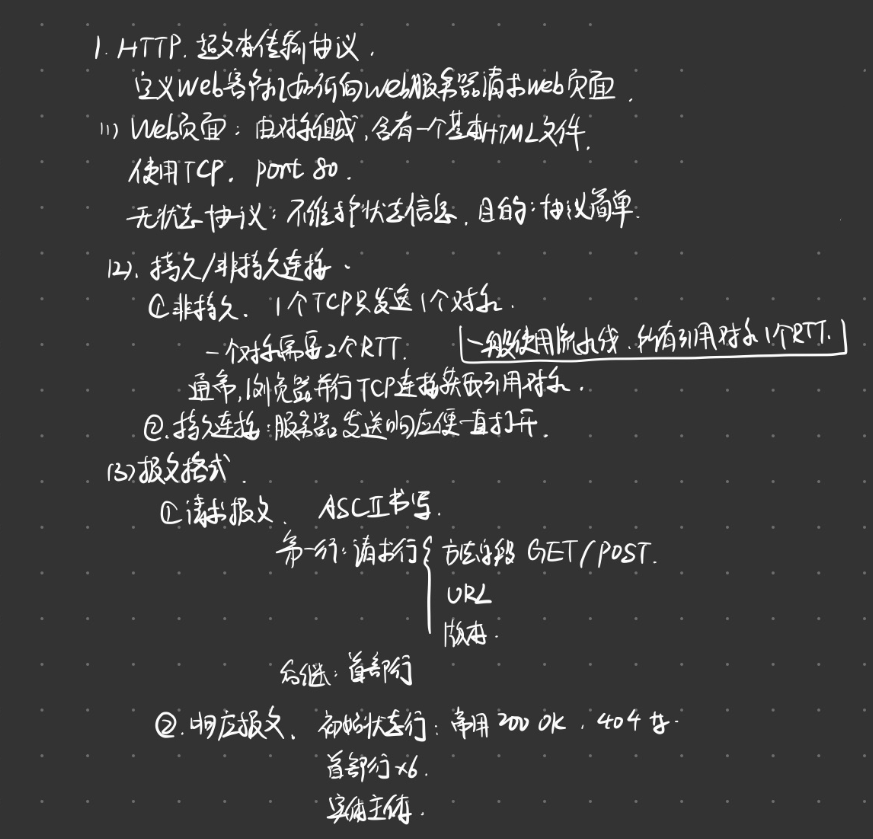 1. HTTP. 超文本传输协议.
定义Web客户机如何向Web服务器请求web页面.
(1) Web页面: 由对象组成, 含有一个基本HTML文件.
使用TCP. port 80.
无状态协议: 不维护状态信息. 目的: 协议简单.
(2). 持久/非持久连接.
①非持久. 1个TCP只发送1个对象.
一个对象需要2个RTT. 一般使用流水线. 所有引用对象1个RTT.
通常, 浏览器并行TCP连接获取引用对象.
②.持久连接: 服务器发送响应便一直打开.
(3)报文格式.
①请求报文. ASCII书写.
第一行: 请求行{ 方法字段 GET/POST.
URL
版本.
后继: 首部行
②.响应报文. 初始状态行: 常用200 OK. 404 等.
首部行x6.
实体主体.